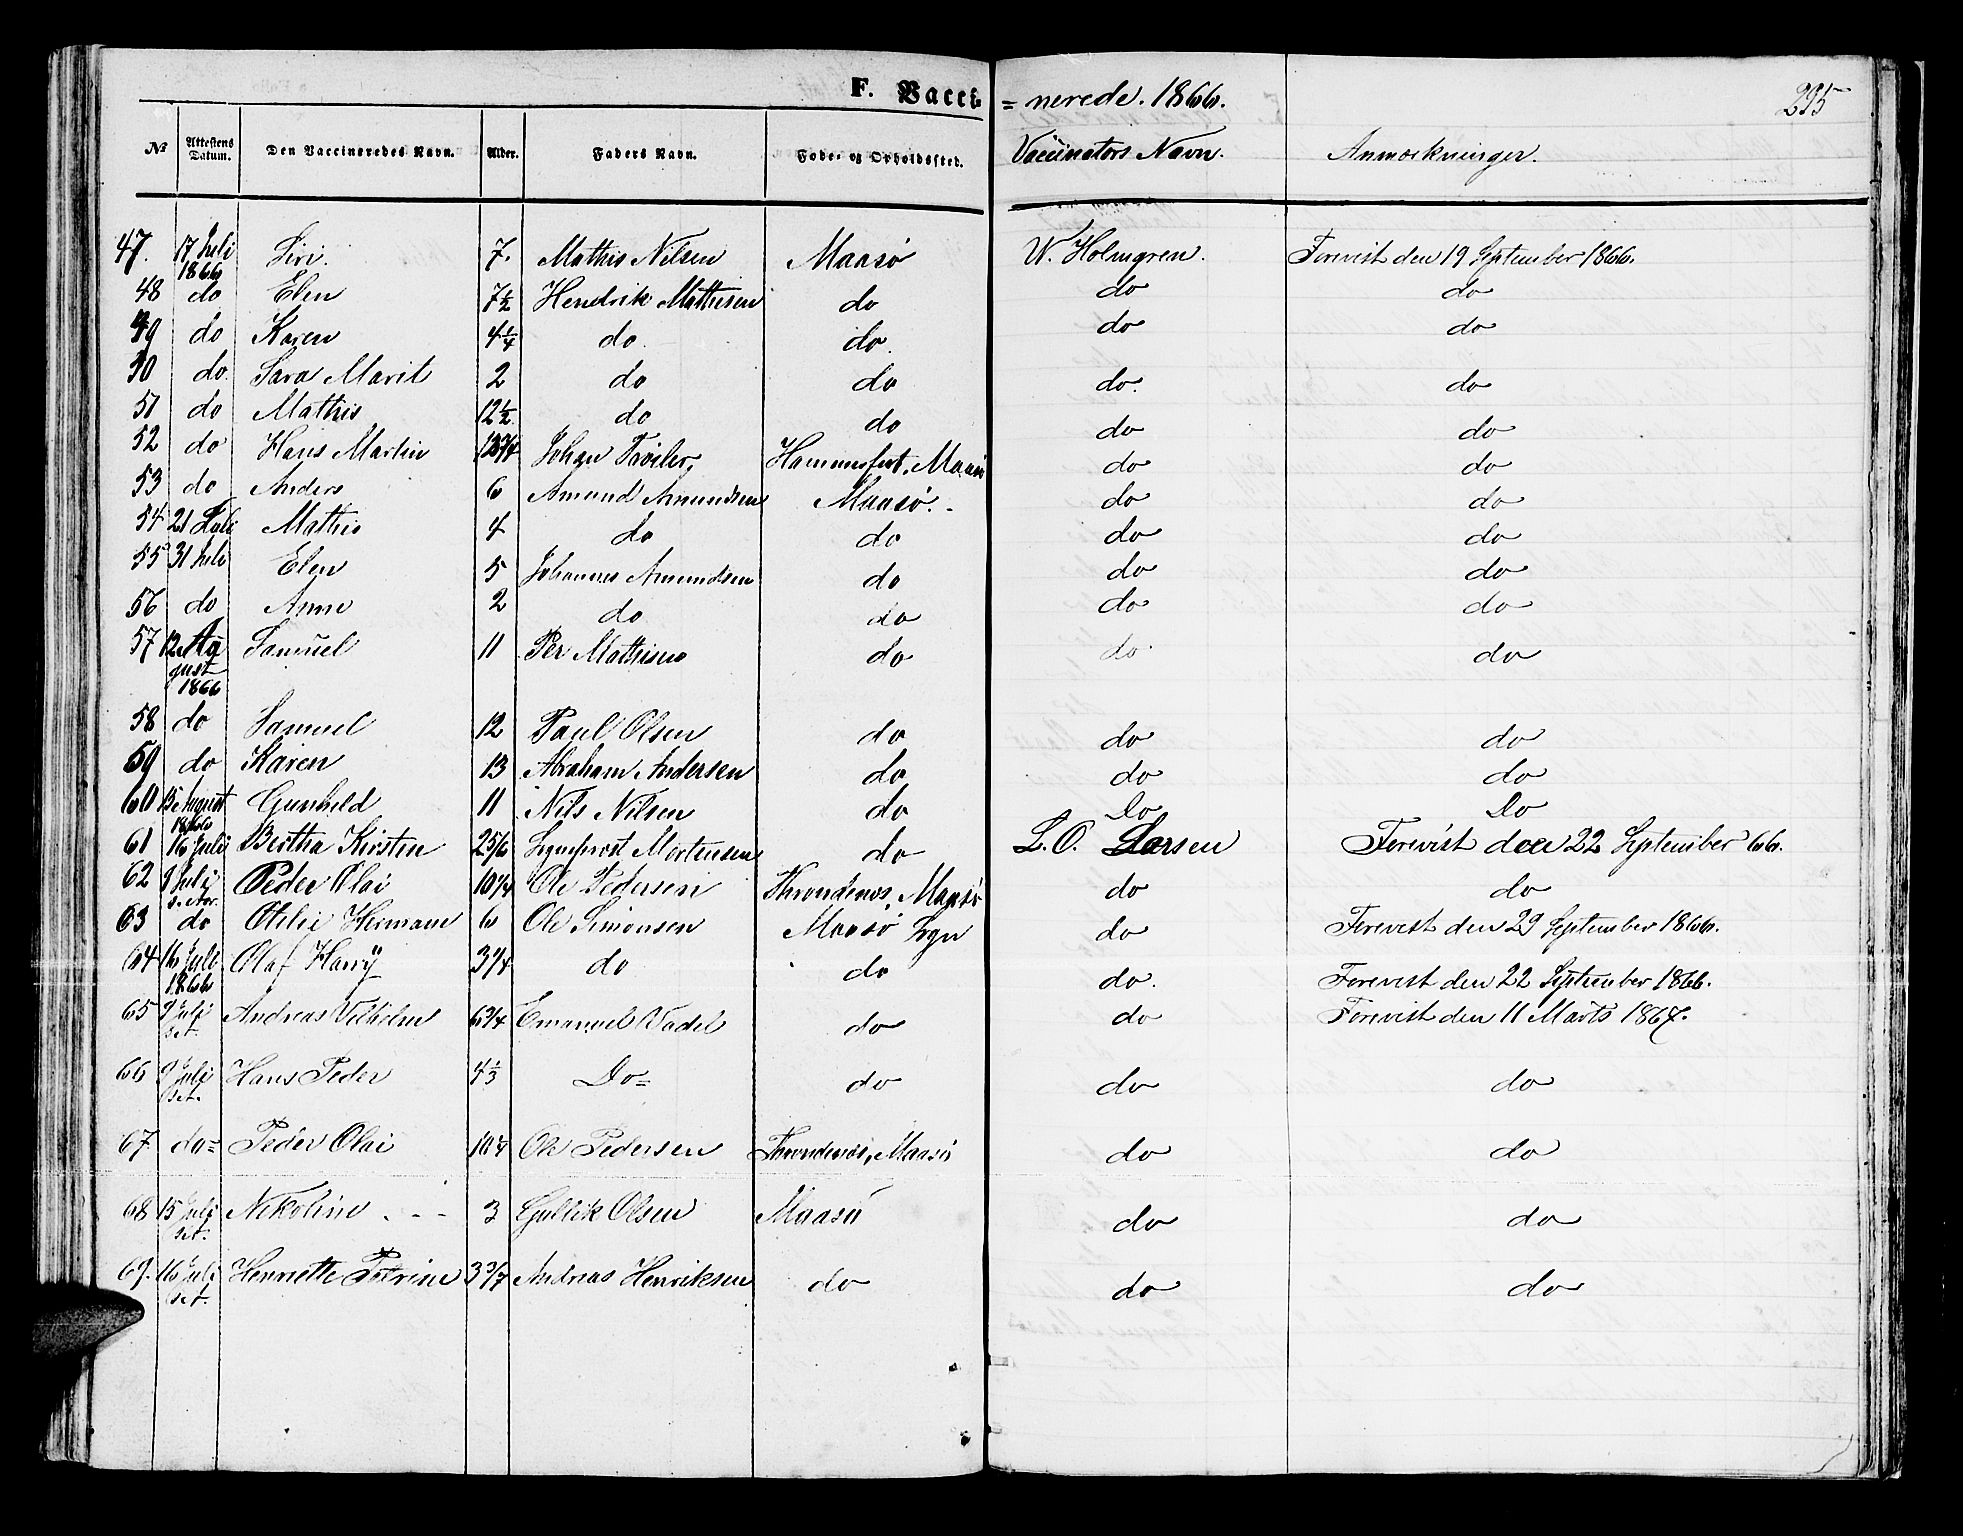 F. Vacci = nerede. 1866. 295
No Attestens Datum. Den Vaccineredes Navn. Alder. Faders Navn. Føde- og Opholdssted. Vaccinators Navn. Anmærkninger.
47. 17 Juli 1866 Siri. 7. Mathis Nilsen Maasø W. Holmgren. Forevist den 19 September 1866.
48 do Elen 7½ Hendrik Mathisen do do do
49 do Karen 4¼ do do. do do
50 do. Sara Marit 2 do do do. do
51 do Mathis 12½ do do do do
52 do Hans Martin 12¾ Johan Hammerfest, Maasø do do
53 do Anders 6 Amund Amundsen Maasø. do do
54 21 Juli Mathis 4 do do do do
55 31 Juli Elen 5 Johannes Amundsen do do do
56 do Anne 2 do do do do
57 12 August 1866 Samuel 11 Per Mathisen do do do
58 do Samuel 12 Paul Olsen do do do
59 do Karen 13 Abraham Andersen do do do
60 15 August 1866 Gunhild 11 Nils Nilsen do Do Do
61 16 Juli Bertha Kirsten 2 5/6 Mortensen do L. O. Larsen Forevist den 22 September 66.
62 9 Juli Peder Olai 10¼ Ole Pedersen Throndenes, Maasø do do
63 do Otilie Hermane 6 Ole Simonsen Maasø Sogn do Forevist den 29 September 1866.
64 16 Juli 1866 Olaf Harry 3¼ do do do. Forevist den 22 September 1866.
65 9 Juli Andreas Vilhelm 6¾ Emanuel Vadel do do Forevist den 11 Marts 1867.
66 9 Juli Hans Peder 4⅓ Do= do do do
67 do= Peder Olai 10¼ Ole Pedersen Throndenes, Maasø do do
68 15 Juli Nikoline 3 Gullik Olsen Maasø do do
69. 16 Juli Henriette Petrine 3 3/7 Andreas Henriksen do do do